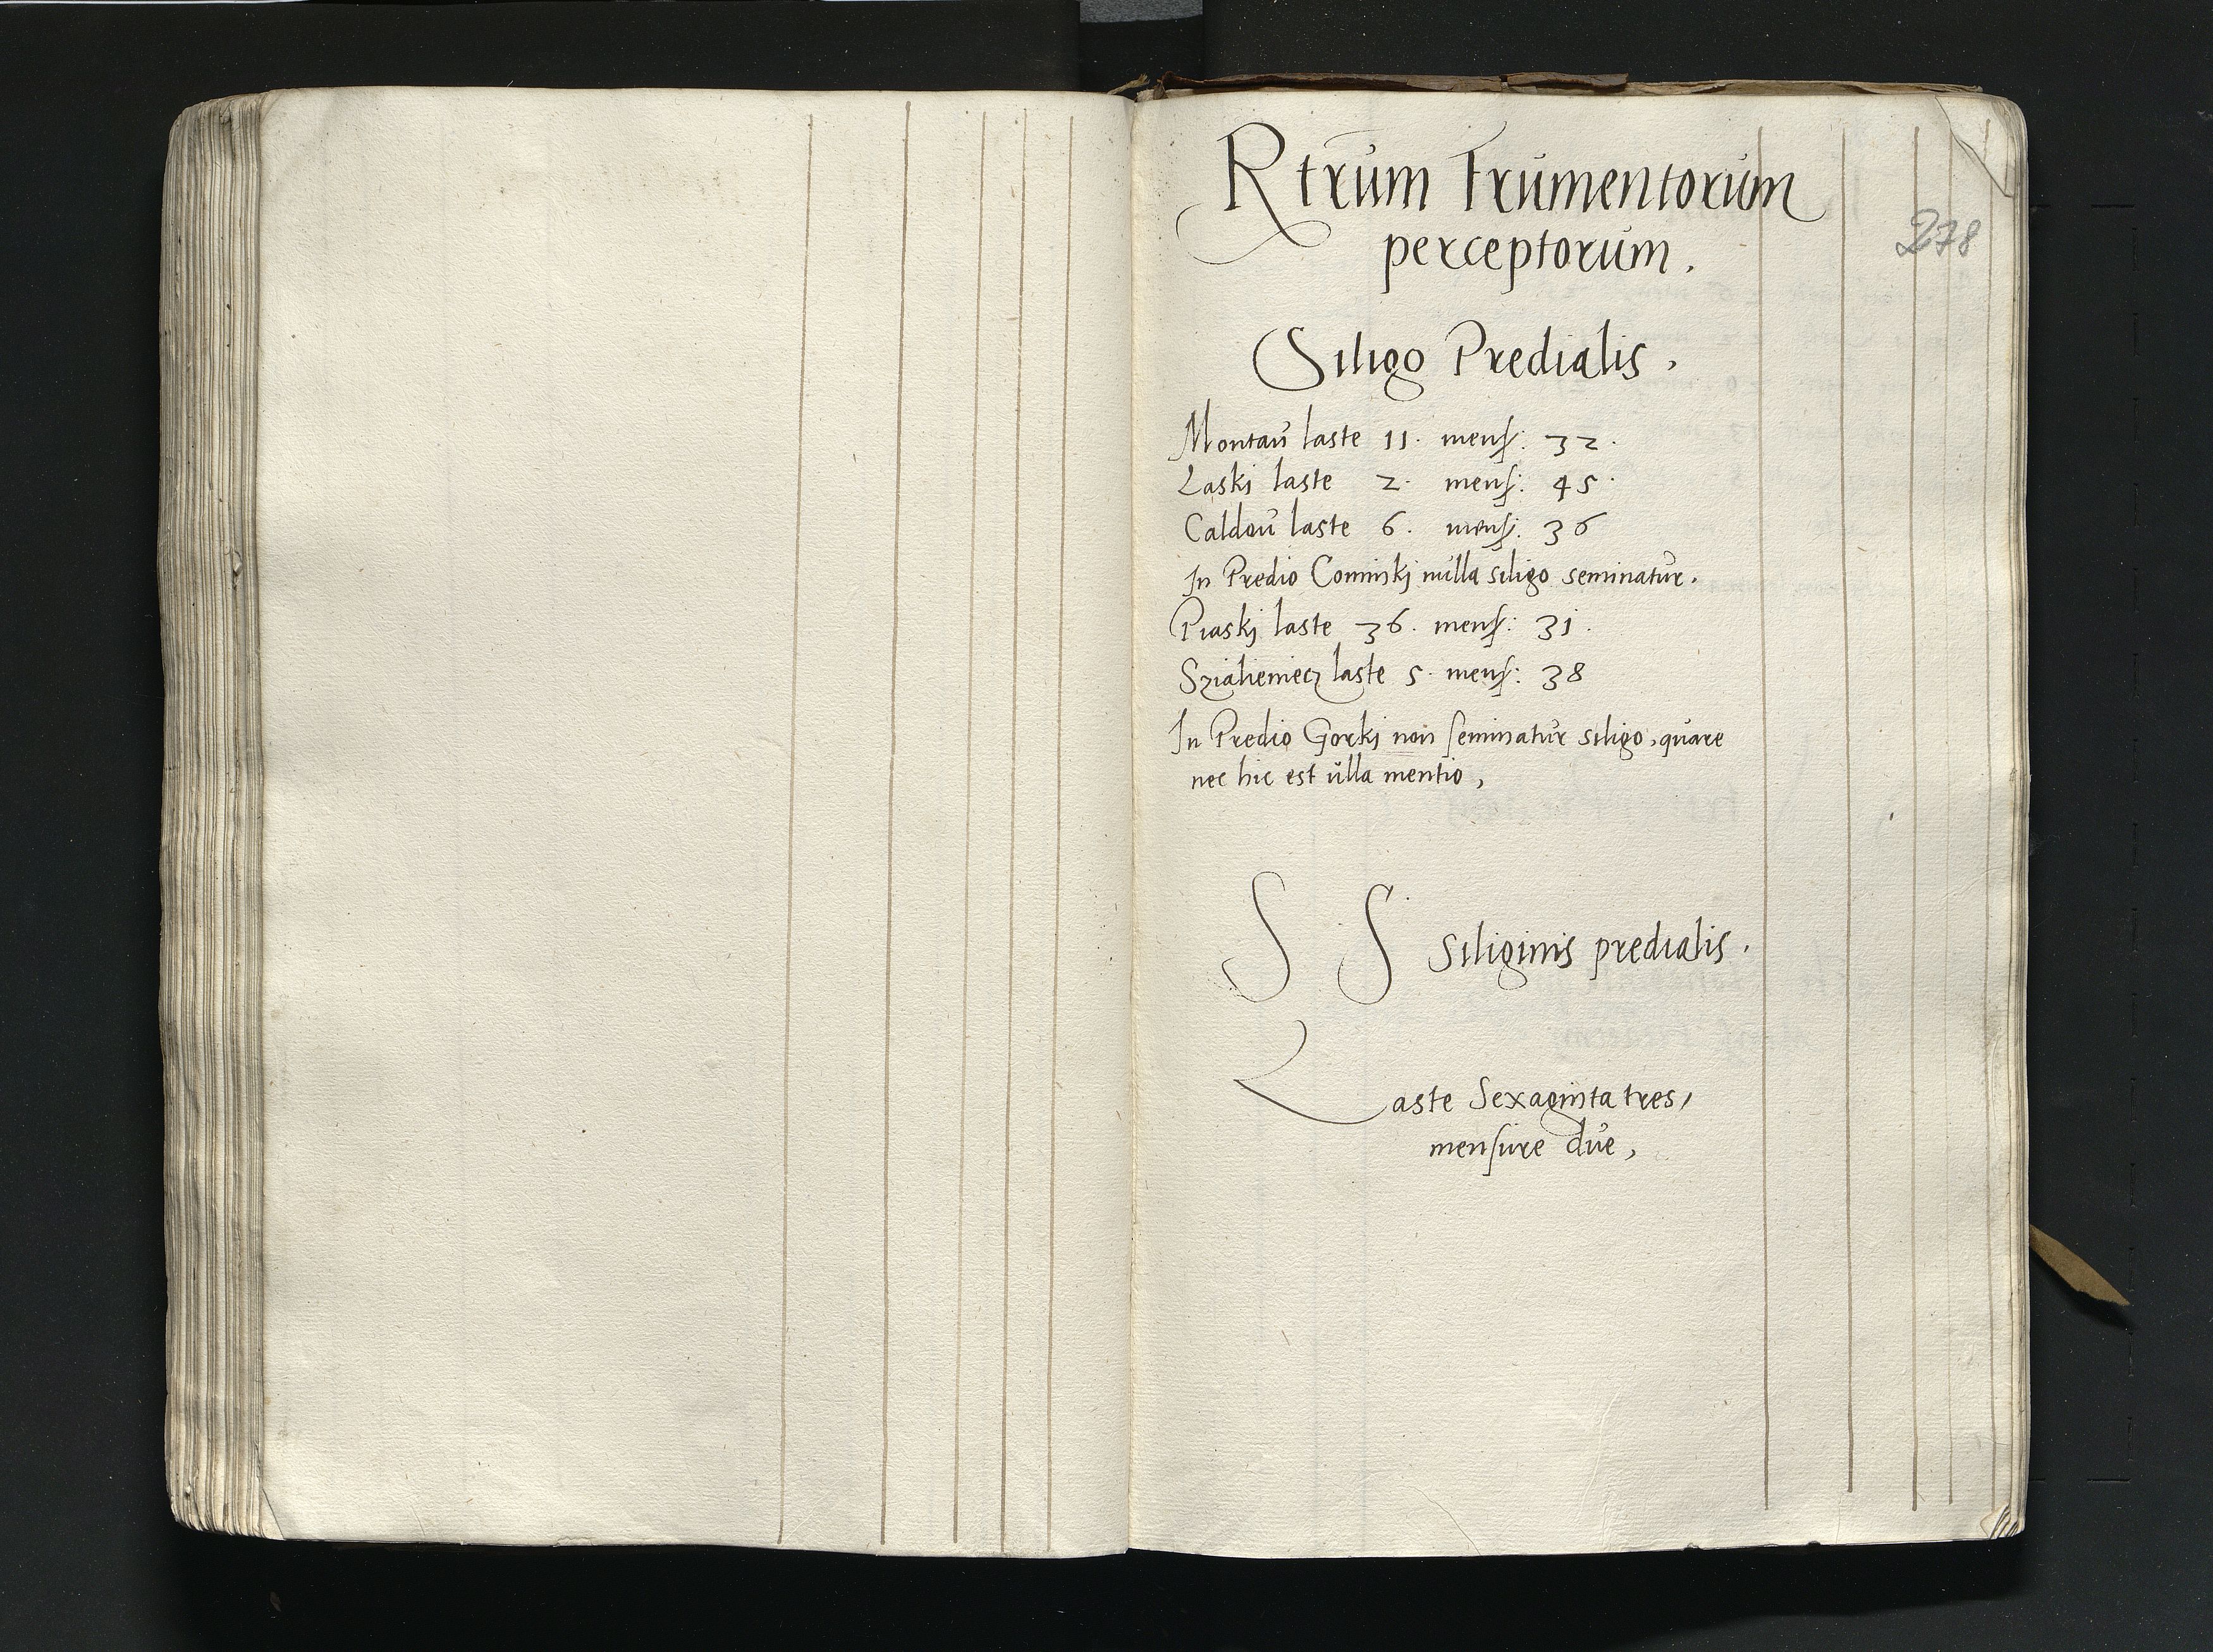 Rtrum Frumentorum
278
perceptorum.
Siligo Predialis.
Montau laste 11. mens: 32.
Laski laste 2. mens: 45.
Caldou laste 6. mens: 36
In Predio Cominskj nulla siligo seminatur.
Piaskj laste 36. mens: 31.
Szialieniecz laste 5. mens: 38
In Predio Gorkj non seminatur siligo, quare
nec hic est ulla mentio,
S S siliginis predialis.
Laste Sexaginta tres,
mensure due,